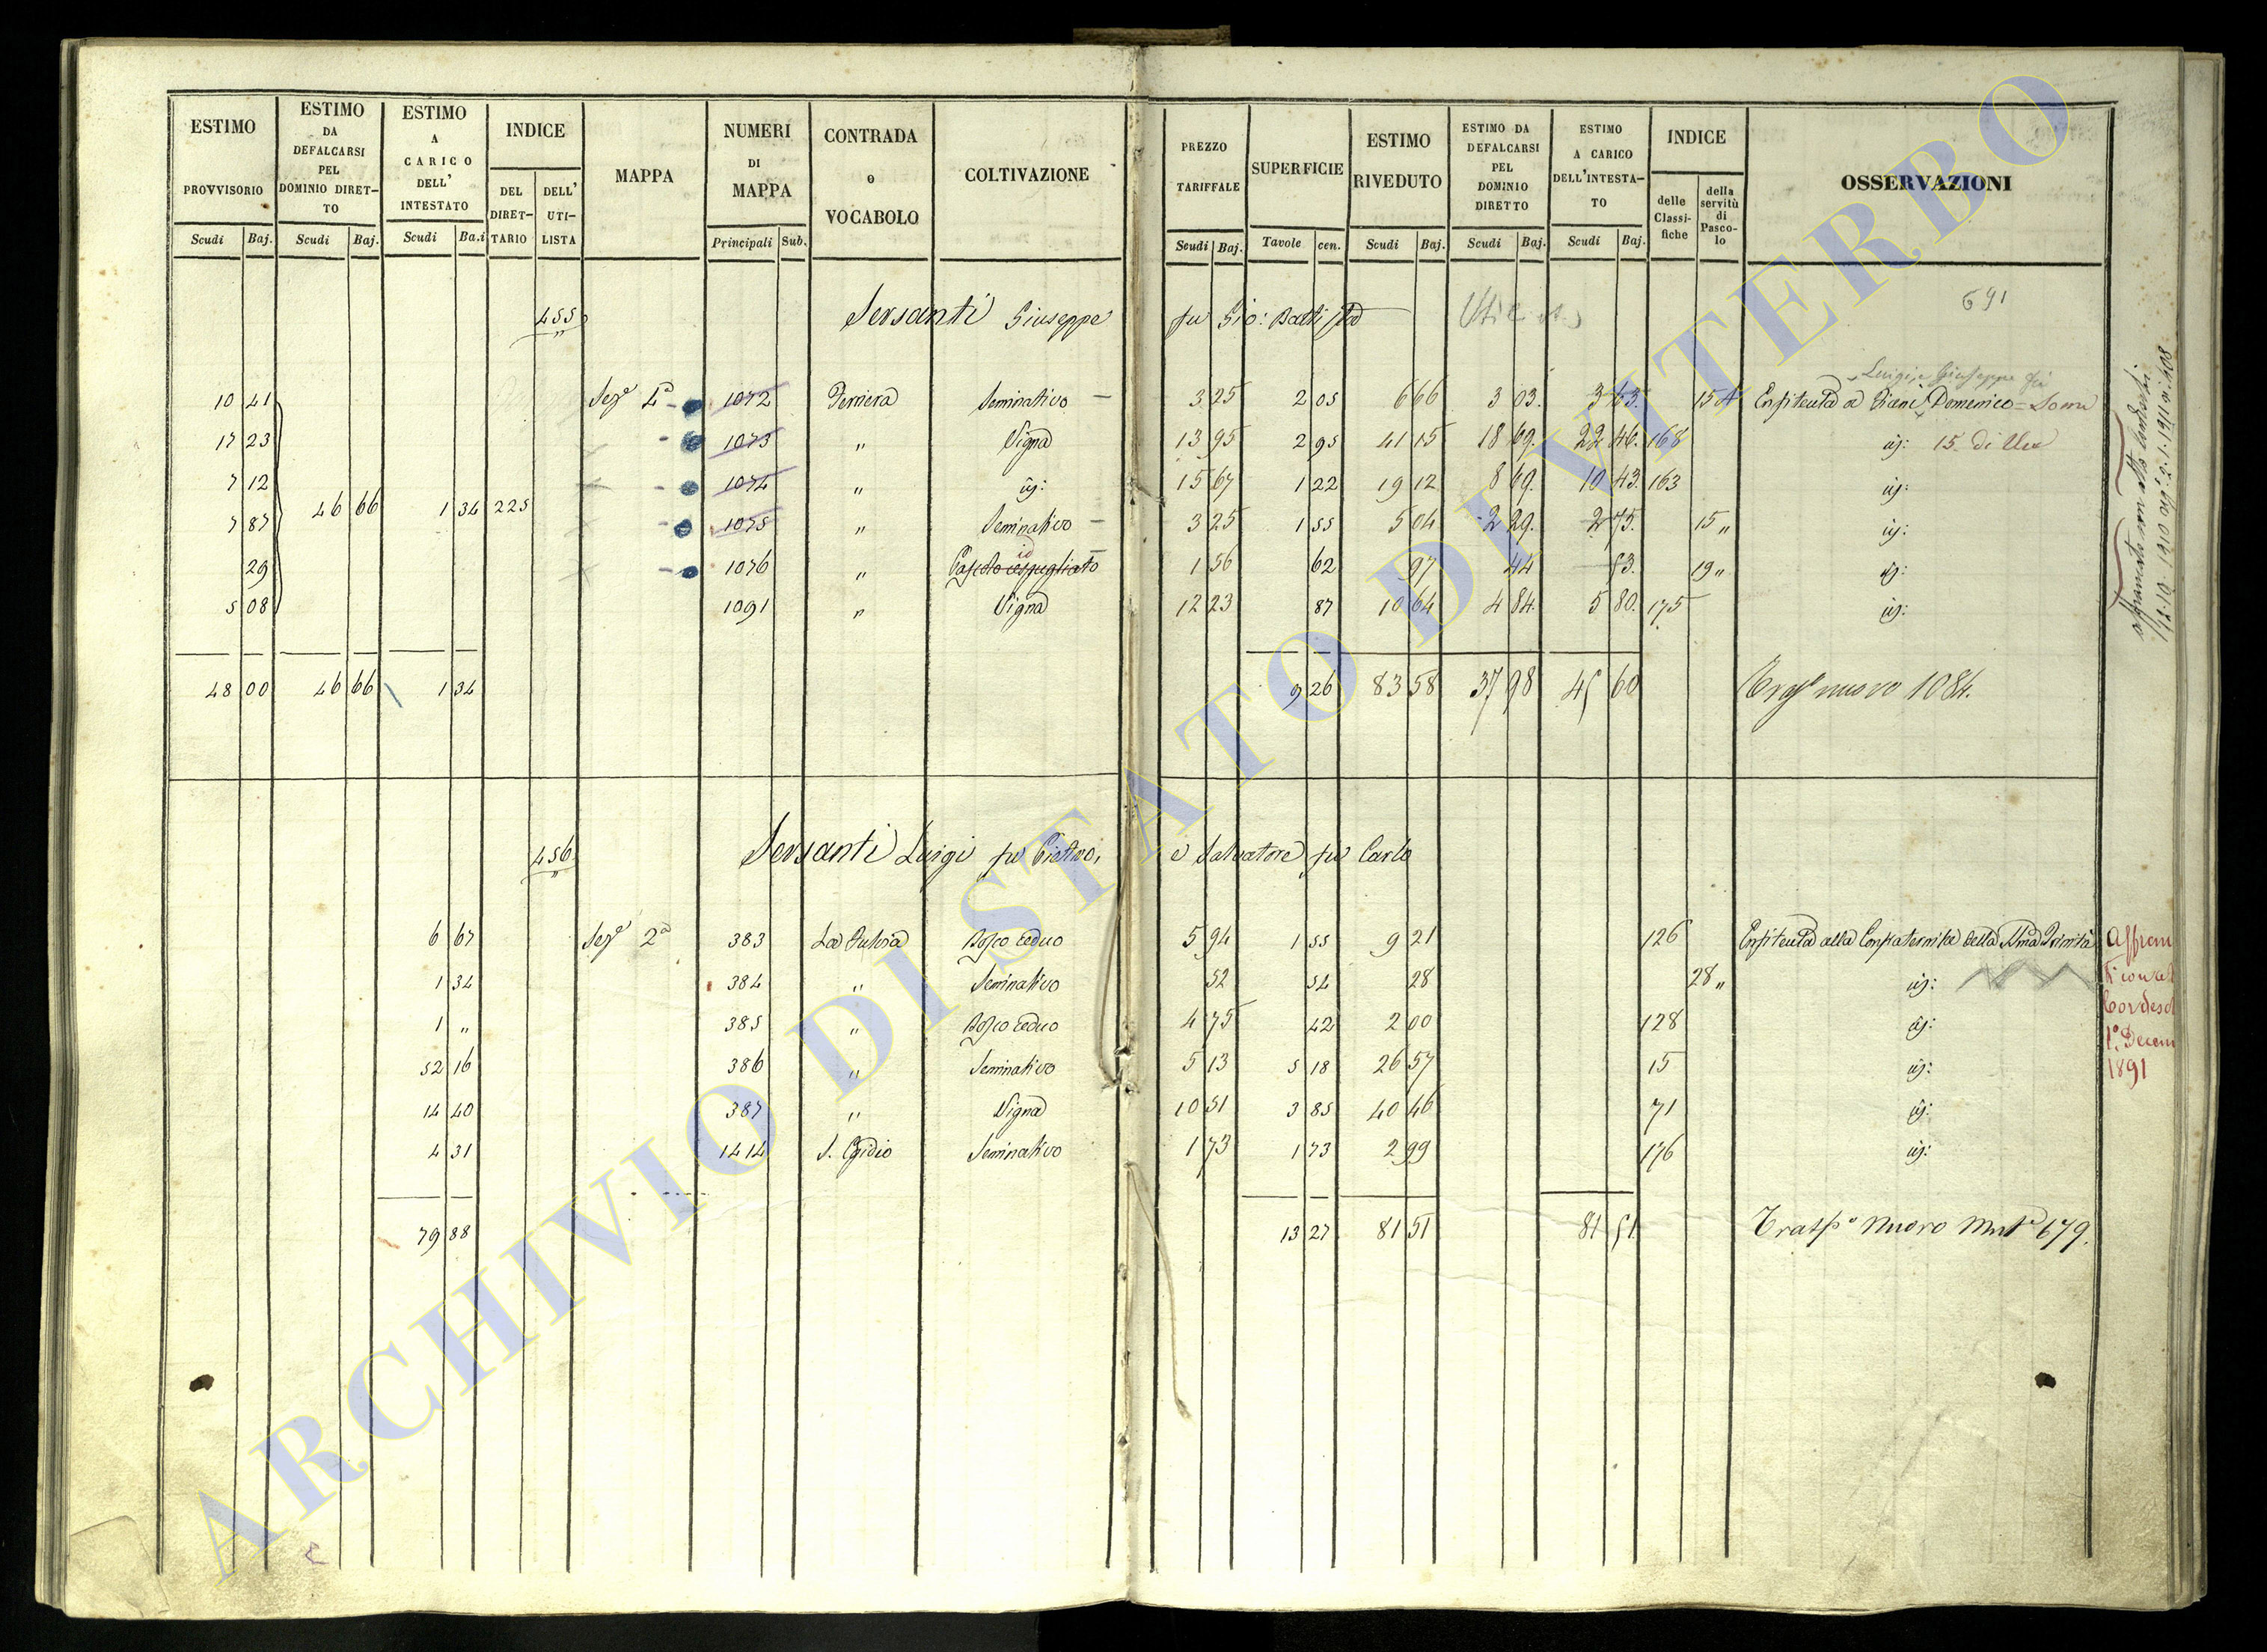 ESTIMO PROVVISORIO Scudi Baj.
ESTIMO DA DEFALCARSI PEL DOMINIO DIRETTO Scudi Baj.
ESTIMO A CARICO DELL' INTESTATO Scudi Ba.i
INDICE DEL DIRETTARIO DELL' UTILISTA
MAPPA
NUMERI DI MAPPA Principali Sub.
CONTRADA o VOCABOLO
COLTIVAZIONE
PREZZO TARIFFALE Scudi Baj.
SUPERFICIE Tavole cen.
ESTIMO RIVEDUTO Scudi Baj.
ESTIMO DA DEFALCARSI PEL DOMINIO DIRETTO Scudi Baj.
ESTIMO A CARICO DELL'INTESTATO Scudi Baj.
INDICE delle Classifiche della servitù di Pascolo
OSSERVAZIONI
691
455 Sersanti Giuseppe fu Gio: Battista
Luigi e Giuseppe fu
10 41 Sez.e 4a 1072 Seminativo 3 25 2 05 6 66 3 03 3 63 15 Enfiteuta a Piani Domenico
17 23 1073 " Vigna 13 95 2 95 41 15 18 69 22 46 168 id:
7 12 1074 " id: 15 67 1 22 19 12 8 69 10 43 163 id:
7 87 46 66 1 34 225 1075 " Seminativo 3 25 1 55 5 04 2 29 2 75 15 " id:
29 1076 " Pascolo cespugliato 1 56 62 97 44 53 19 " id:
5 08 1091 " Vigna 12 23 87 10 64 4 84 5 80 175 id:
48 00 46 66 1 34 9 26 83 58 37 98 45 60 nuovo 1084.
456 Sersanti Luigi fu Pietro, e Salvatore fu Carlo
6 67 Sez.e 2a 383 Bosco ceduo 5 94 1 55 9 21 126 Enfiteuta alla Confraternita della SSma Trinità
1 34 384 " Seminativo 52 54 28 28 " id:
1 " 385 " Bosco ceduo 4 75 42 2 00 128 id:
52 16 386 " Seminativo 5 13 5 18 26 57 15 id:
14 40 387 " Vigna 10 51 3 85 40 46 71 id:
4 31 1414 S. Egidio Seminativo 1 73 1 73 2 99 176 id:
1891
79 88 13 27 81 51 81 51 Trasp.o Nuovo 679.
ARCHIVIO DI STATO DI VITERBO